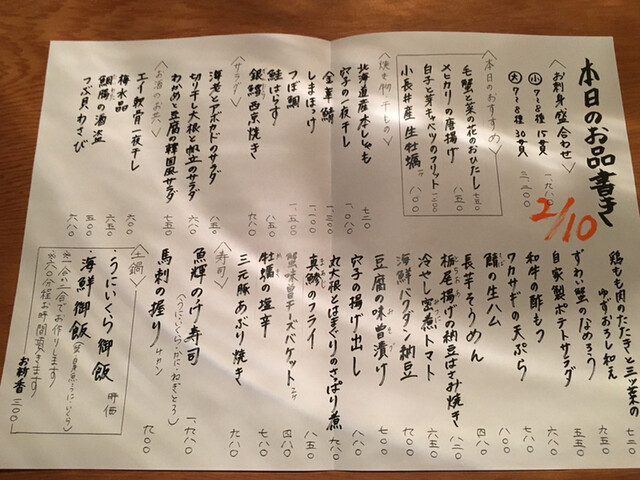 本日のお品書き
2/10
お刺身盛合わせ
小 7〜8種 15貫 一、九八〇
大 7〜8種 30貫 三、二〇〇
〈本日のおすすめ〉
毛蟹と菜の花のおひたし 七五〇
メヒカリの唐揚げ 八五〇
白子と芽キャベツのフリット 一二〇〇
小長井産 生牡蠣 一ケ 四八〇
〈焼き物、干もの〉
北海道産本ししゃも 七二〇
穴子の一夜干し 一、〇八〇
金華鯖 一、二〇〇
しまほっけ 一、三〇〇
つぼ鯛 一、五〇〇
鮭はらす 七八〇
銀鱈西京焼き 九八〇
〈サラダ〉
海老とアボカドのサラダ 八五〇
切り干し大根と帆立のサラダ 六五〇
わかめと豆腐の韓国風サラダ 七五〇
〈お酒のお共〉
エイ軟骨一夜干し 六〇〇
梅水晶 六〇〇
鯛腸の酒盗 五〇〇
つぶ貝わさび 六八〇
鶏もも肉のたたきと三ツ葉の
ゆずおろし和え 七二〇
ずわい蟹のなめろう 九八〇
自家製ポテトサラダ 五五〇
和牛の酢もつ 六八〇
ワカサギの天ぷら 八〇〇
鯖の生ハム 四八〇
長芋そうめん
栃尾揚げの納豆はさみ焼き 八二〇
冷やし出煮トマト 六五〇
海鮮バクダン納豆 九八〇
豆腐の味噌漬け 七〇〇
穴子の揚げ出し 八〇〇
丸大根とはまぐりのさっぱり煮 九八〇
真鯵のフライ 八五〇
蟹味噌チーズバケット 二ケ 四八〇
牡蠣の塩辛 七八〇
三元豚あぶり焼き 九八〇
〈寿司〉
魚輝のっけ寿司 一、九八〇
(うに・いくら・かに・ねぎとろ)
馬刺の握り サカン 九〇〇
〈土鍋〉
・うにいくら御飯 時価
・海鮮御飯
※一合か二合でお作りします
お時間頂きます
お新香 三〇〇